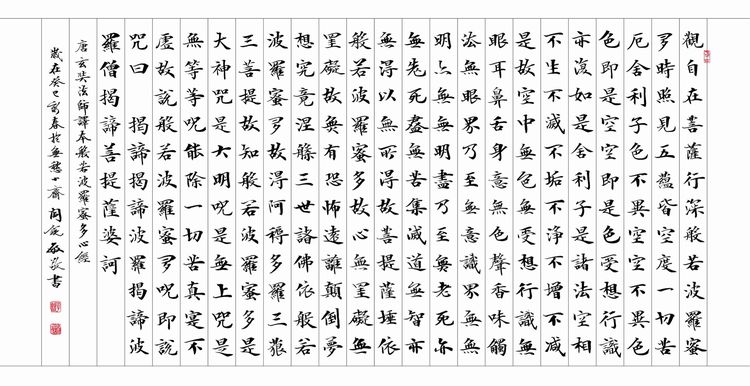 觀自在菩薩行深般若波羅蜜
多時照見五蘊皆空度一切苦
厄舍利子色不異空空不異色
色即是空空即是色受想行識
亦復如是舍利子是諸法空相
不生不滅不垢不淨不增不減
是故空中無色無受想行識無
眼耳鼻舌身意無色聲香味觸
法無眼界乃至無意識界無無
明亦無無明盡乃至無老死亦
無老死盡無苦集滅道無智亦
無得以無所得故菩提薩埵依
般若波羅蜜多故心無罣礙無
罣礙故無有恐怖遠離顛倒夢
想究竟涅槃三世諸佛依般若
波羅蜜多故得阿耨多羅三藐
三菩提故知般若波羅蜜多是
大神咒是大明咒是無上咒是
無等等咒能除一切苦真實不
虛故說般若波羅蜜多咒即說
咒曰 揭諦揭諦波羅揭諦波
羅僧揭諦菩提薩婆訶
唐玄奘法師譯本般若波羅蜜多心經
歲在癸巳新春於無 齋 敬書